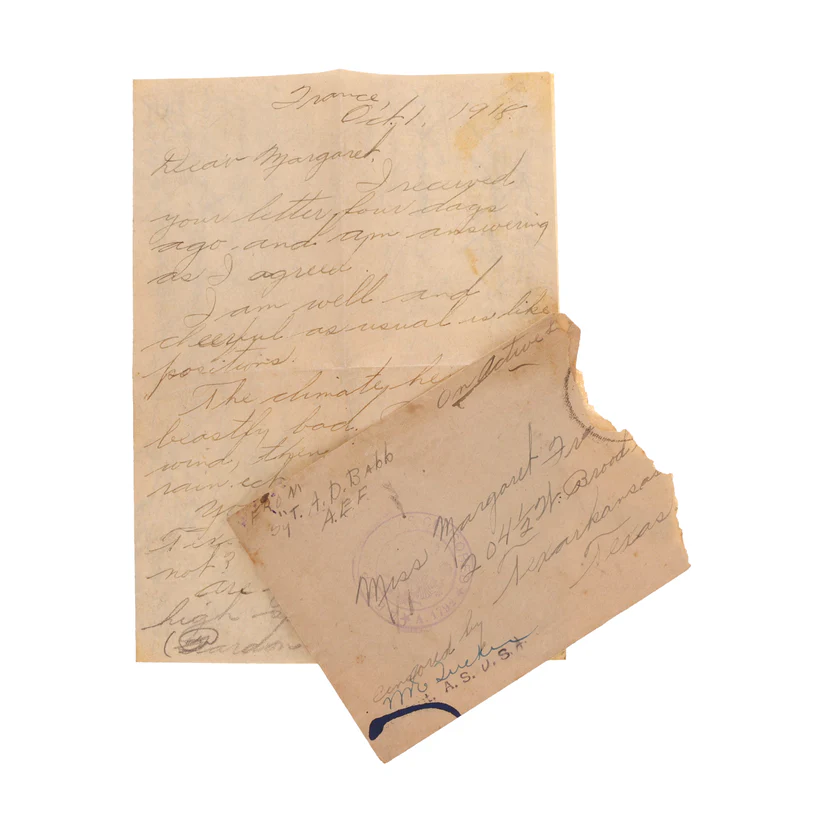 France,
Oct, 1, 1918.
Dear Margaret.
I received
your letter four days
ago and am answering
as I agreed.
I am well and
cheerful as usual in like
positions.
The climate, he
beastfy bad.
wind, then
rain ect
Yo
Tex
not?
are
high sp
(Pardon
On Active S
FROM
SGT. A. D. Babb
A.E.F.
Miss Margaret Fra
204½ W. Broad
Texarkansas
Texas.
censored by
A. S. U. S. A.